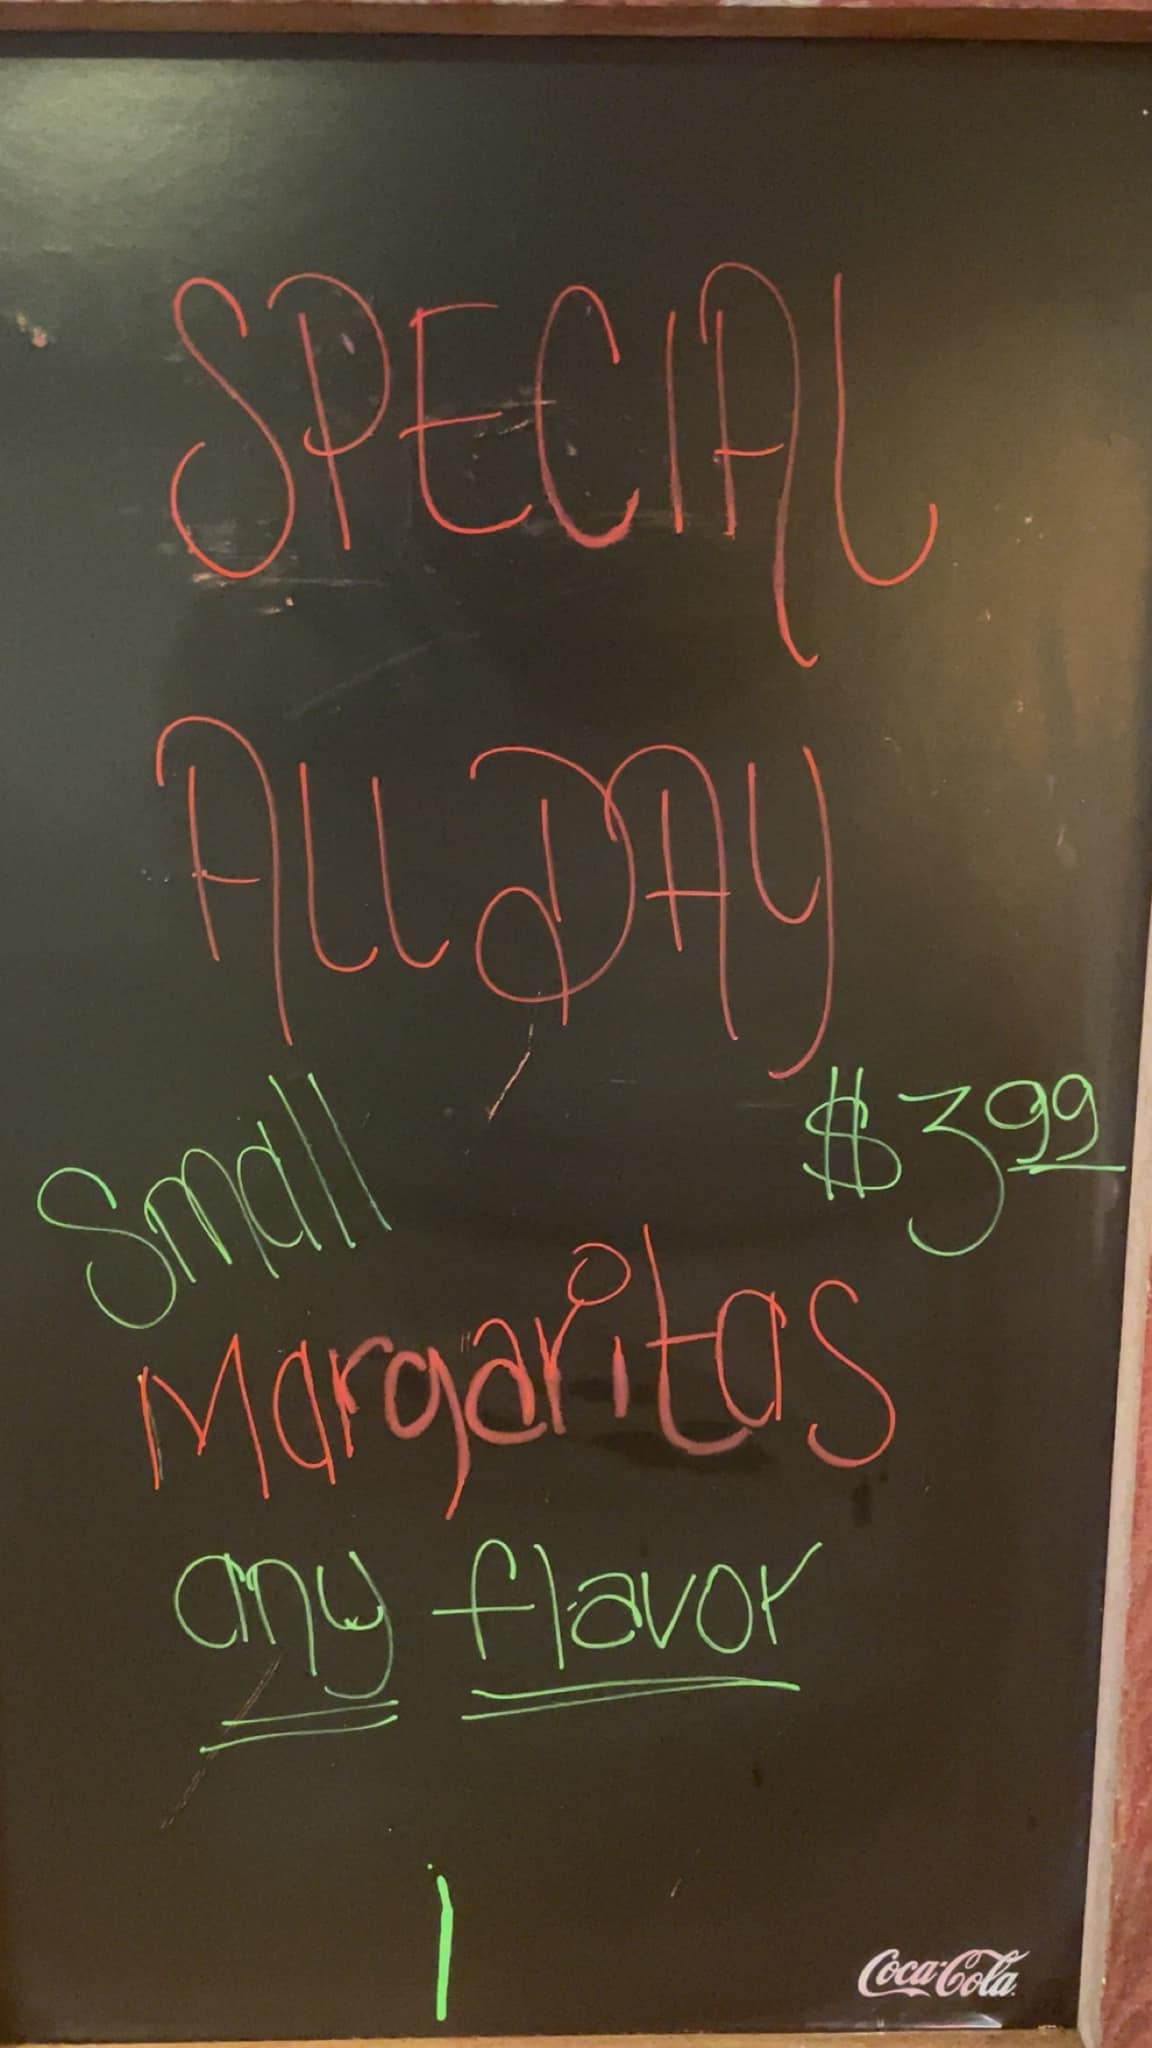 SPECIAL
ALL DAY
Small $3.99
Margaritas
any flavor
Coca-Cola